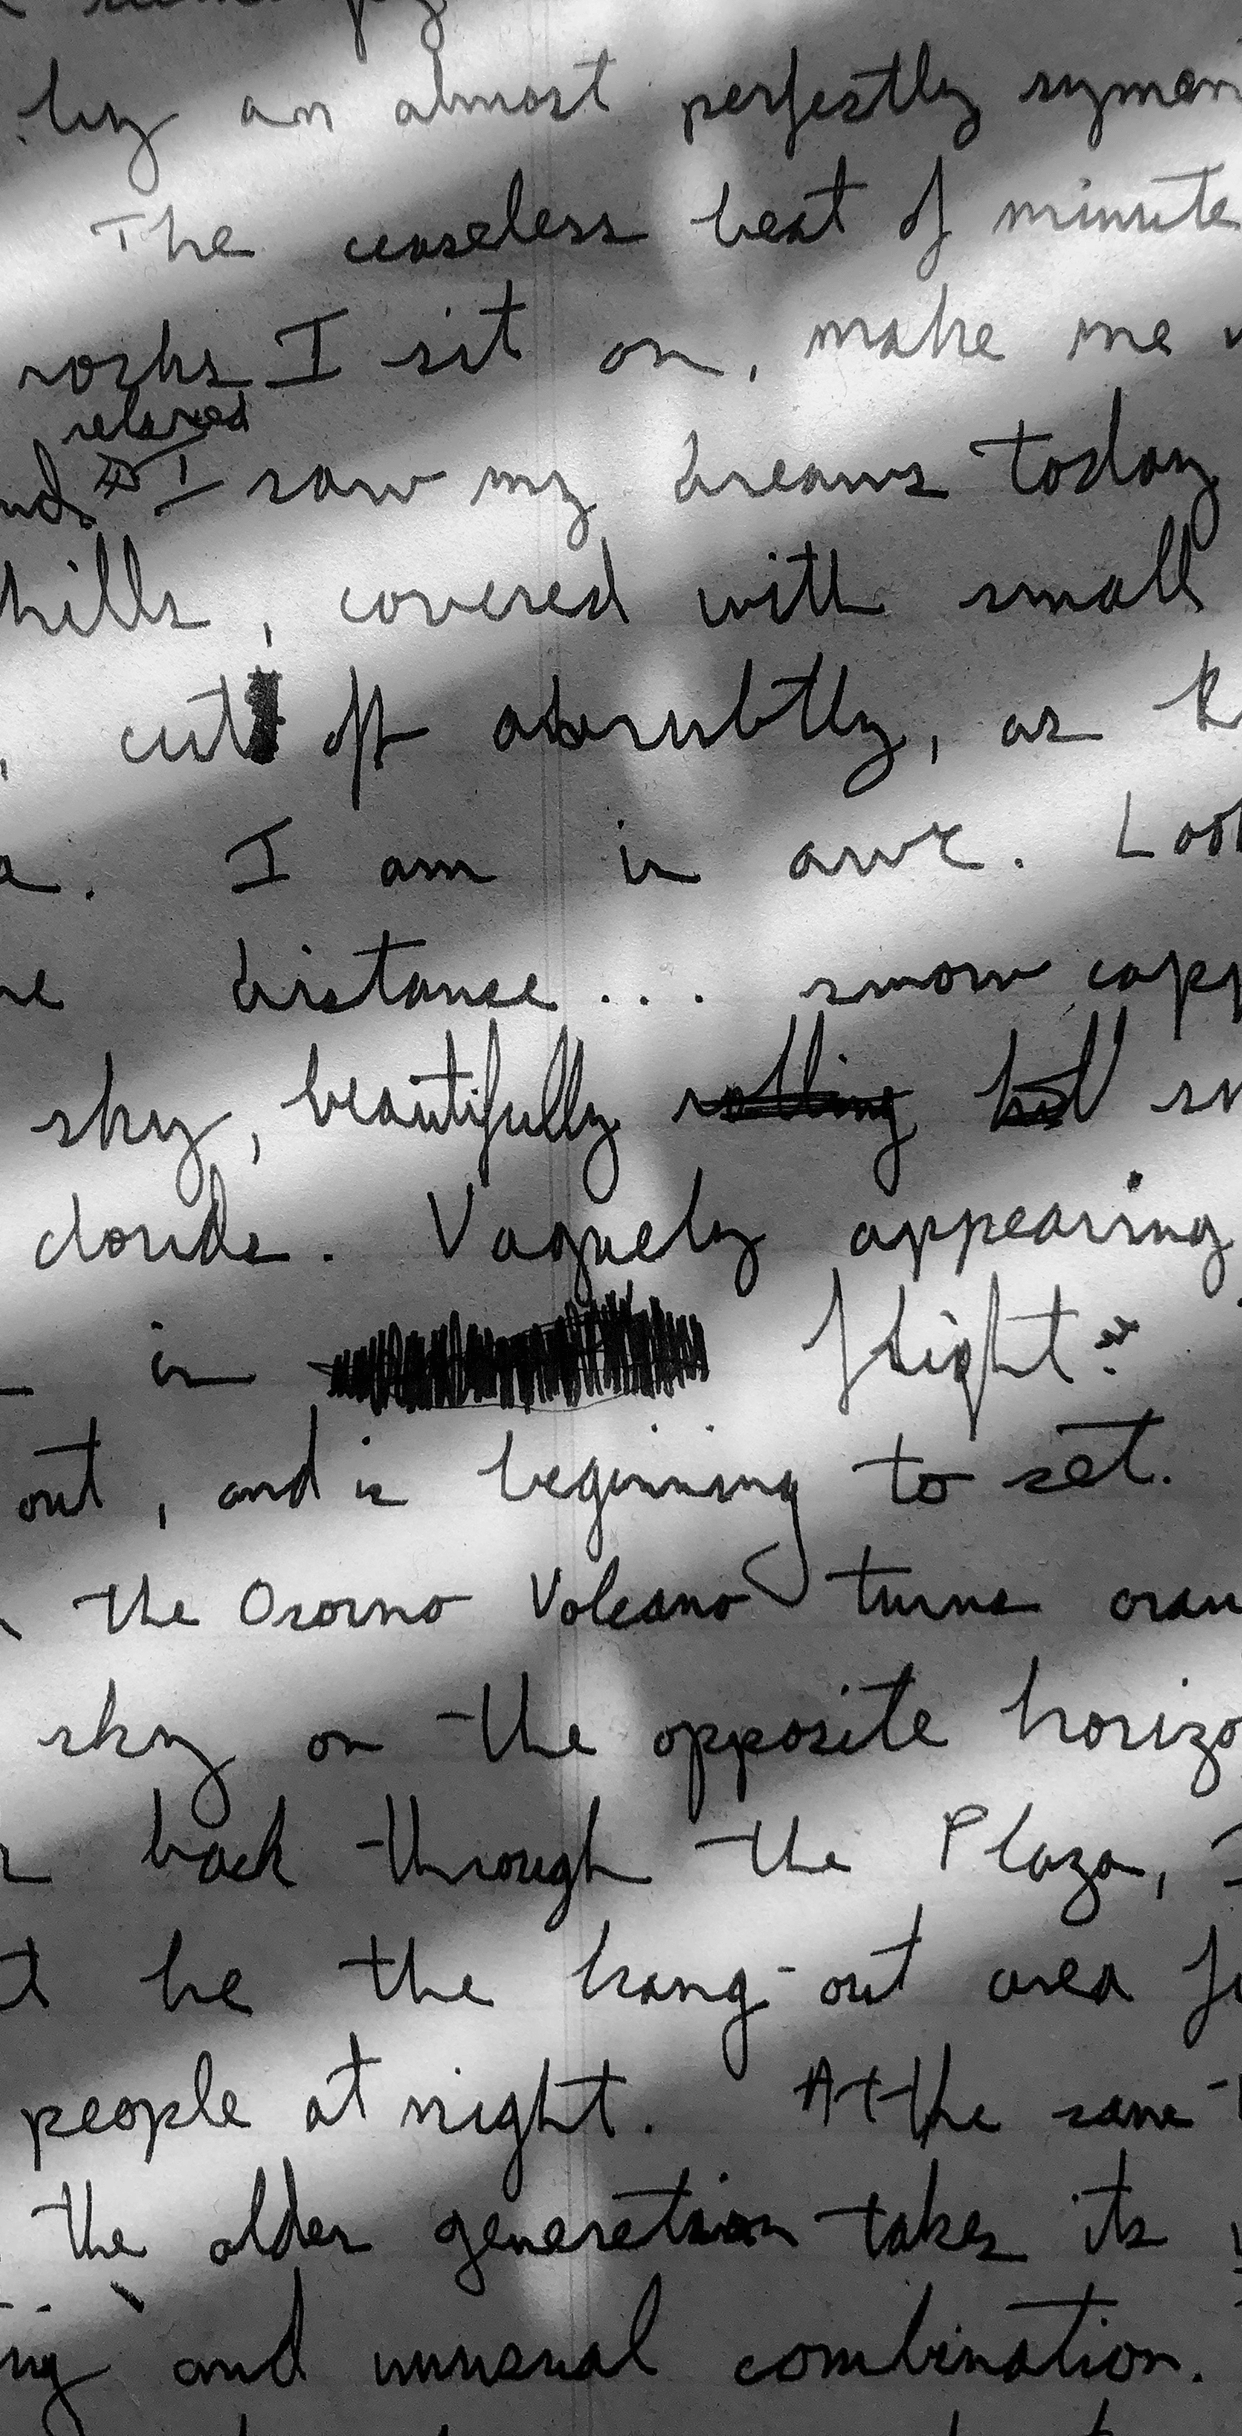 by an almost perfectly
The ceaseless beat of minute
rocks I sit on, make me
relaxed
I saw my dreams today
hills, covered with small
cut off abrubtly, as
a. I am in awe.
distance... snow
sky, beautifully rolling
clouds. Vaguely appearing
in flight
out, and is beginning to set.
the Osorno Volcano turns
sky on the opposite
back through the Plaza,
be the hang-out area
people at night. At the same
the older generation takes its
and unusual combination.